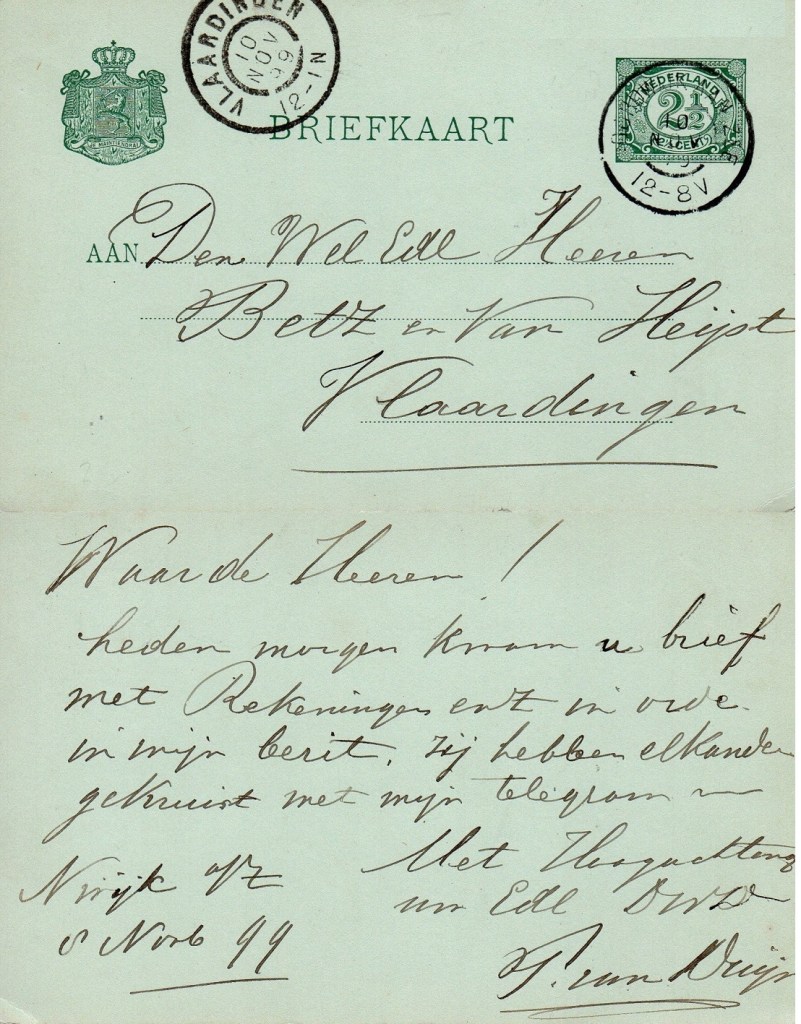 VLAARDINGEN
10
NOV
99
12-1N
BRIEFKAART
NEDERLAND
2½
CENT
10
12-8V
AAN Den Wel Edl Heeren
Betz en Van Heijst
Vlaardingen
Waarde Heeren !
heden morgen kwam u brief
met Rekeningen enz in orde
in mijn berit. zij hebben elkander
gekruist met mijn telegram
Nwijk a/Z
8 Novb 99
Met Hoogachting
uw Edl DWD
P. van Duijn